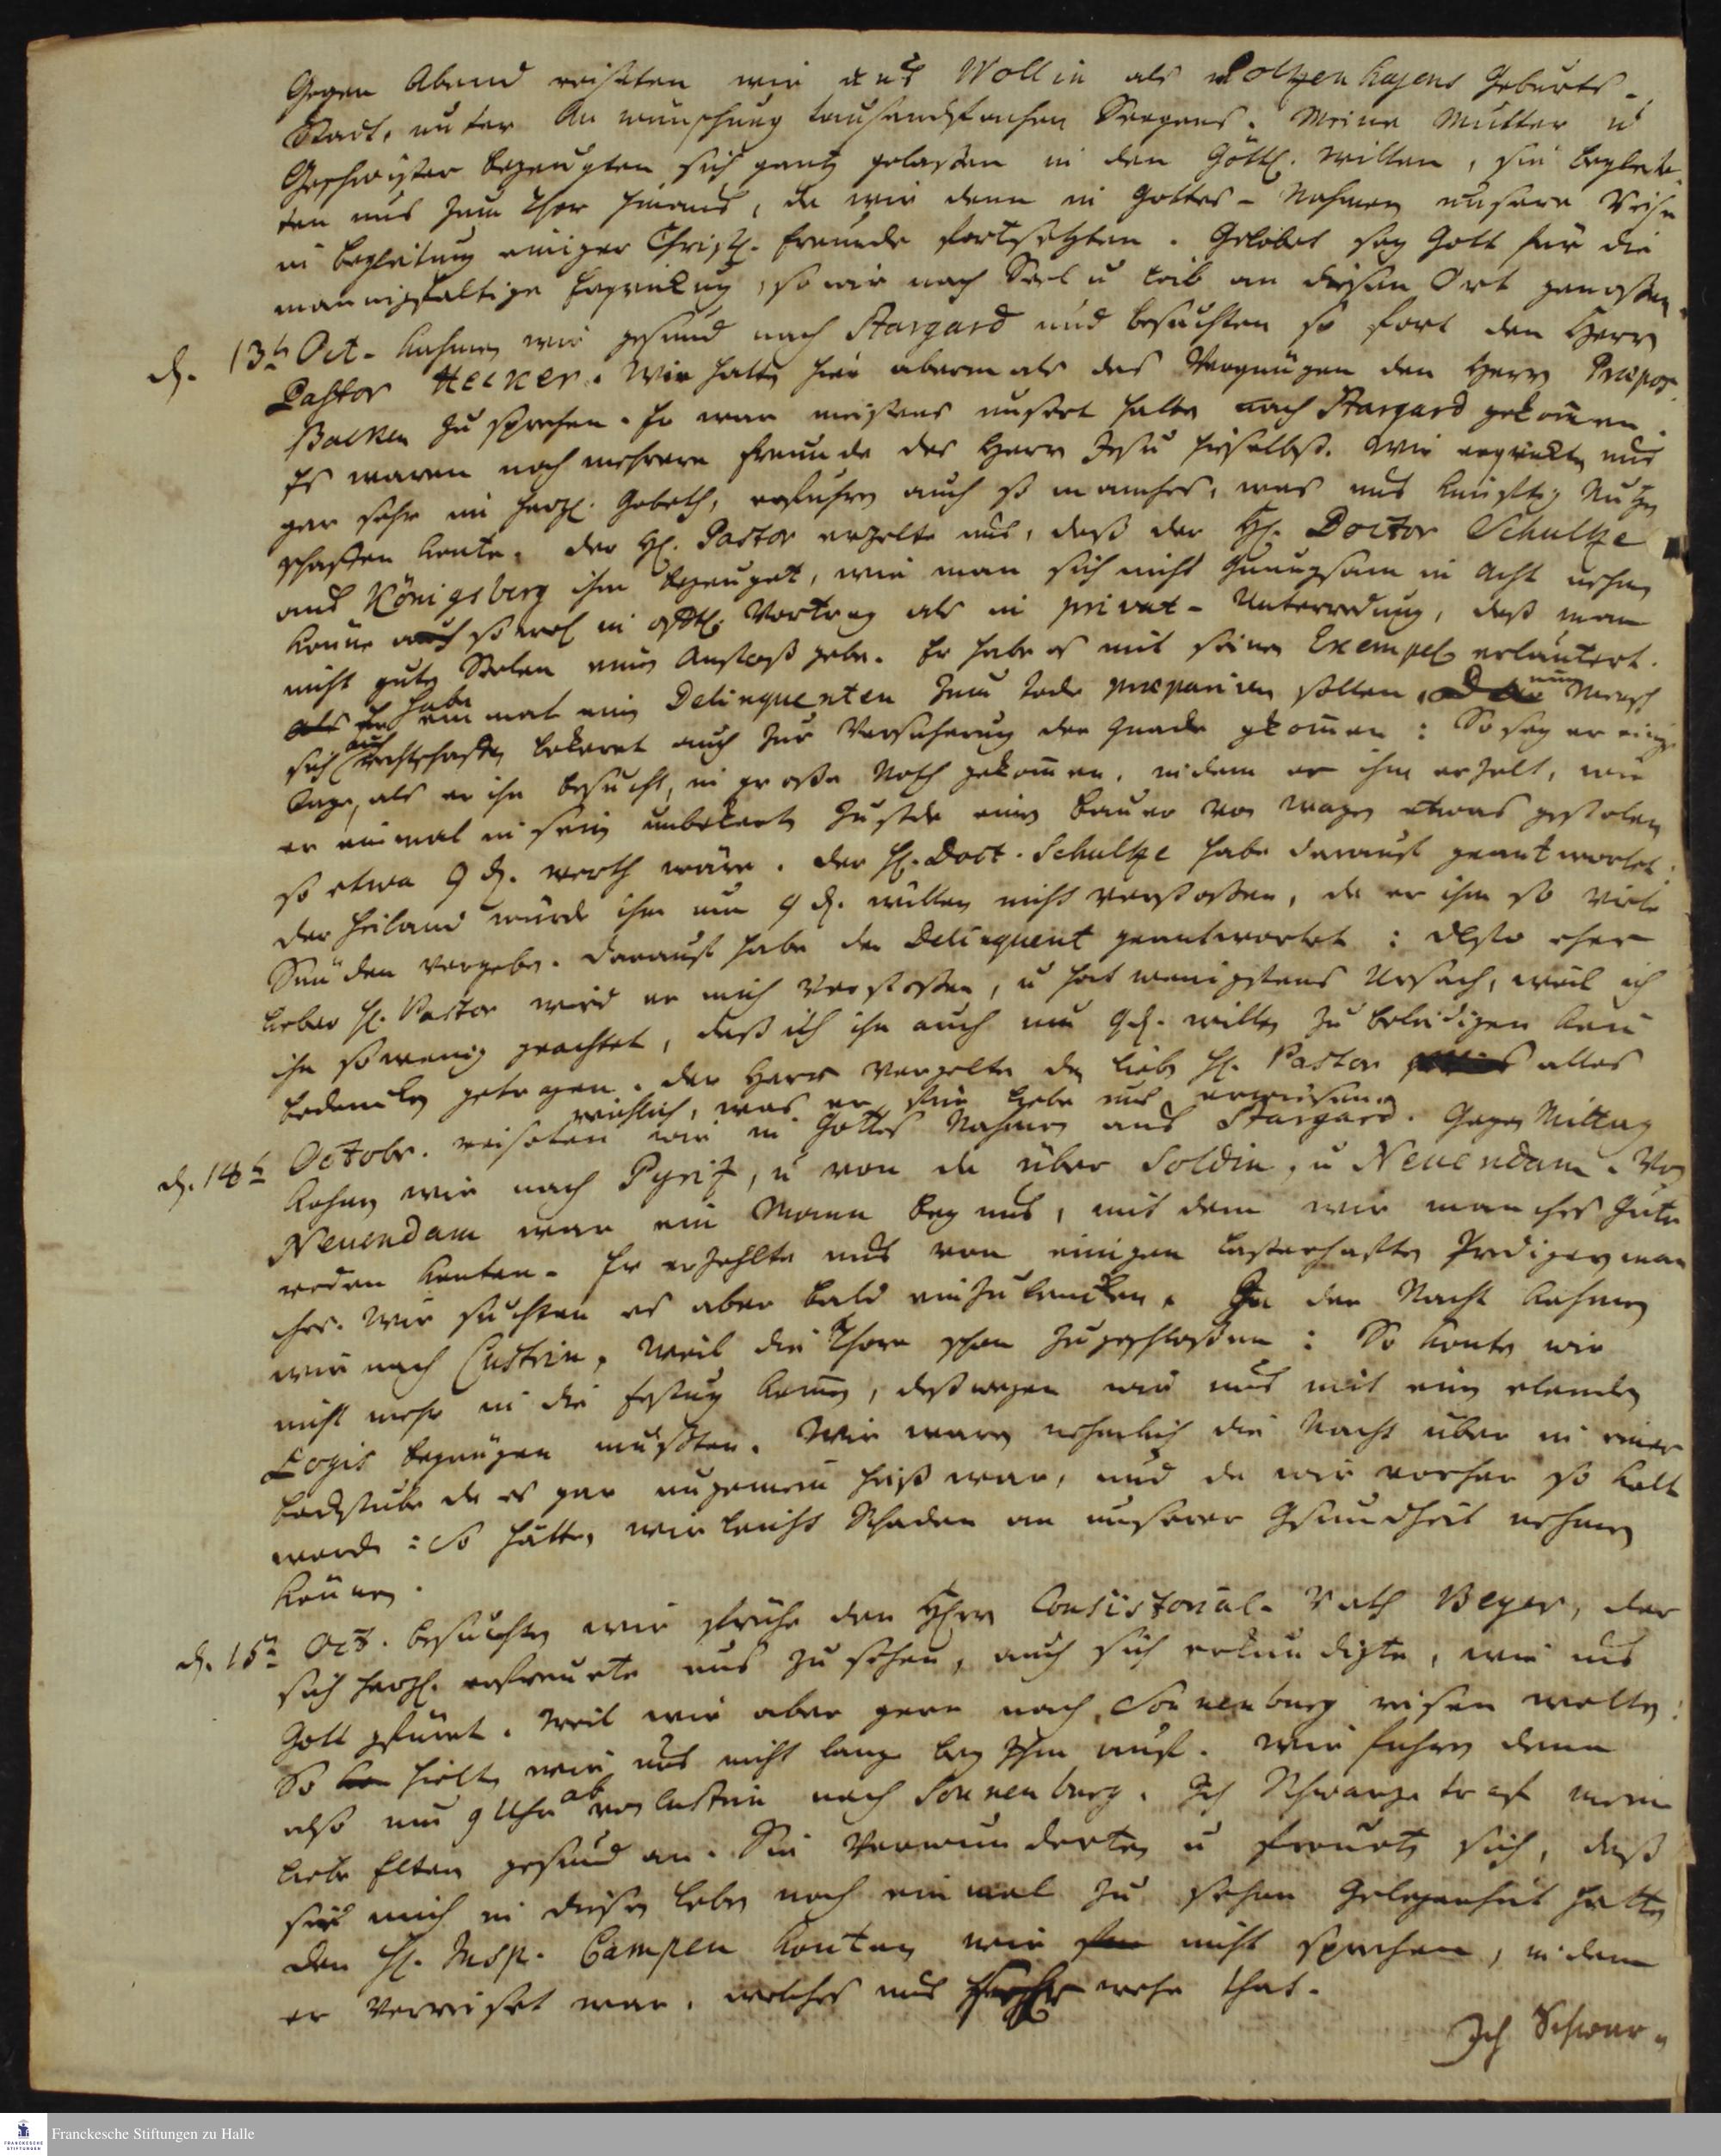 Gegen Abend reiseten wir aus Wollin als Poltzenhagens Geburts-
Stadt, unter Anwunschung tausendfachen Seegens. Meine Mutter u
Geschwister bezeugten sich gantz gelassen in den Göttl. Willen, sie beglei-
ten uns zum Thor hinaus, da wir denn in Gottes-Nahmen unsere Reise
in Begleitung einiger Christl. Freunde fortsetzten. Gelobet sey Gott für die
mannigfaltige Erquickung, so wir nach Seel u Leib an diesen Ort genossen.
d. 13t Oct. kahmen wir gesund nach Stargard und besuchten so fort den Herrn
Pastor Hecker. Wir hatten hier abermals das Vergnügen den Herrn Præpos.
Backen zu sprechen. Er war meistens unsert halben nach Stargard gekommen.
Es waren noch mehrere Freunde des Herrn Jesu hieselbst. Wir erquickten uns
gar sehr im hertzl. Gebeth, erfuhren auch so manches, was uns künftig Nutzen
schaffen konte. Der H. Pastor erzelte uns, daß der H. Doctor Schultze
aus Königsberg ihm bezeuget, wie man sich nicht gnungsam in Acht nehmen
könne auch sowol in öfftl. Vortrag als in privat-Unterredung, daß man
nicht guten Seelen einen Anstoß gebe. Er habe es mit seinen Exempel erläutert.
als er habe einmal einen Delinquenten zum Tode præpariren sollen, Da nun Mensch
sich auch rechtschaffen bekeret auch zur Versicherung der Gnade gekommen: So sey er einige
Tage, als er ihn besucht, in grosse Noth gekommen, indem er ihm erzelt, wie
er einmal in sein unbekerten Zustde einen Bauer vom Wagen etwas gestolen
so etwa 9 d. werth wäre. Der H. Doct. Schultze habe darauf geantwortet:
der Heiland würde ihn um 9 d. willen nicht verstossen, da er ihm so viele
Sünden vergeben. Darauf habe der Delinquent geantwortet: desto eher
lieber H. Pastor wird er mich verstossen, u hat wenigstens Ursach, weil ich
ihn so wenig geachtet, daß ich ihn auch um 9 d. willen zu beleidigen kein
bedencken getragen. Der Herr vergelte den lieben H. Pastor alles
reichlich, was er für Liebe uns erwiesen.
d. 14t Octobr. reiseten wir in Gottes Nahmen aus Stargard. Gegen Mittag
kahmen wir nach Pyritz, u von da über Soldin, u Neuendam. Von
Neuendam war ein Mann bey uns, mit dem wir manches Gute
reden konten. Er erzehlte uns von einigen lasterhaften Predigern man-
ches. Wir suchten es aber bald einzulencken. In der Nacht kahmen
wir nach Custrin, weil die Thore schon zugeschlossen: So konten wir
nicht mehr in die Festung kommen, deßwegen wir uns mit einen elenden
Logis begnügen mußten. Wir waren nehmlich die Nacht über in einer
Badstube da es gar ungemein heiß war, und da wir vorher so kalt
worden: So hätten wir leicht Schaden an unserer Gesundheit nehmen
können.
d. 15t Oct. besuchten wir frühe den Herrn Consistorial-Rath Beyer, der
sich hertzl. erfreuete uns zu sehen, auch sich erkundigte, wie uns
Gott geführt. Weil wir aber gern nach Sonnenburg reisen wolten:
So hielten wir uns nicht lange bey Ihm auf. Wir fuhren denn
also um 9 Uhr ab von Custrin nach Sonnenburg. Ich Schwartz traf meine
liebe Elten gesund an. Sie verwunderten u freueten sich, daß
sie mich in diesen Leben noch einmal zu sehen Gelegenheit hatten
den H. Insp. Campen konten wir nicht sprechen, indem
er verreiset war, welches uns sehr wehe that.
Ich Schwar-
Franckesche Stiftungen zu Halle
FRANCKESCHE STIFTUNGEN